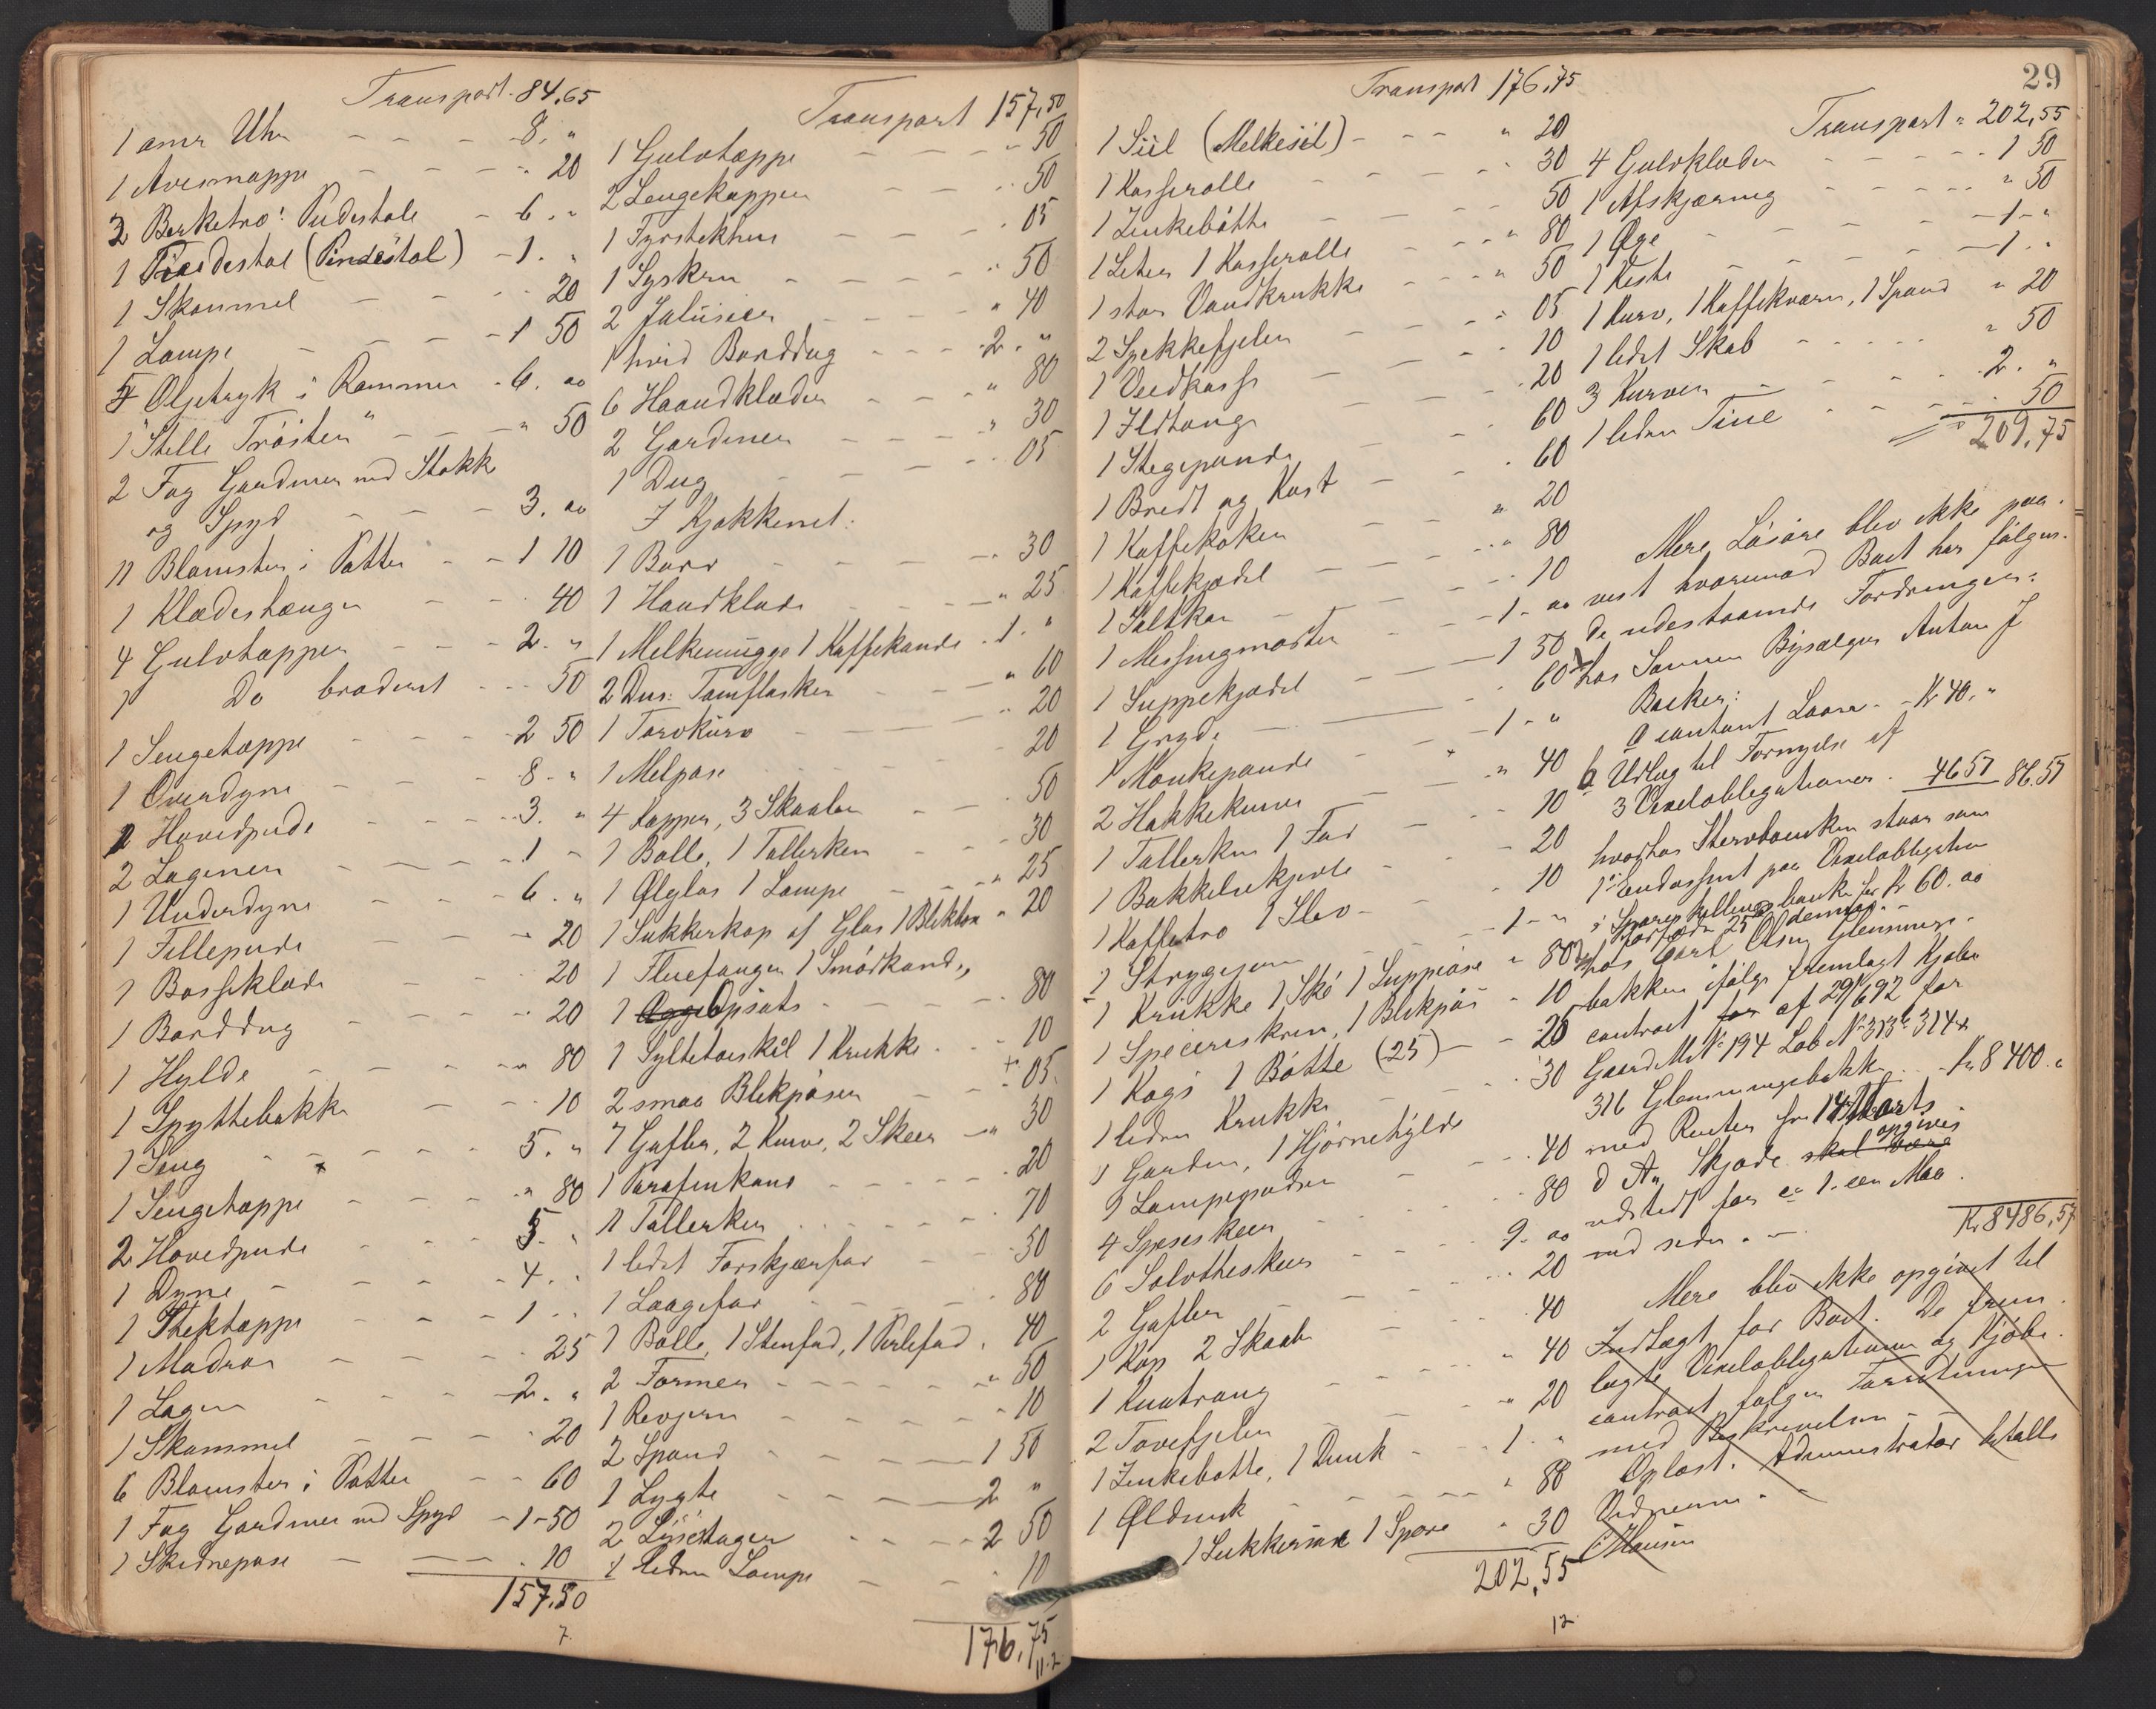 Transport. 84,65
1 amr Uhr - - - 8. "
1 Avismappe - - - " 20
3 Berketræ! Pudestole - 6. "
1 Pindestol (Pindestol) - 1. "
1 Skammel - - - 20
1 Lampe - - - 1 50
5 Oljetryk i Rammer - 6. oo
1 "Stille Trösten" - - - " 50
2 Fag Gardiner med Stokk
og Spyd - - - 3. oo
11 Blomster i Potter - - 1 10
1 Klædeshænger - - 40
4 Gulvtæpper - - - 2. "
1 Do broderet - - - 50
1 Sengetæppe - - - 2 50
1 Overdyne - - - 8. "
1 Hovedpude - - - 3. "
2 Lagener - - - 1 -
1 Underdyne - - - 6. "
1 Fillepude - - - 20
1 Bosseklæde - - - 20
1 Borddug - - - 20
1 Hylde - - - " 80
1 Spyttebakke - - - 10
1 Seng - - - 5. "
1 Sengetæppe - - - " 80
2 Hovedpude - - - 5. "
1 Dyne - - - 4. "
1 Stektæppe - - - 1 - "
1 Madras - - - 25
1 Lagen - - - 2. "
1 Skammel - - - 20
6 Blomster i Potter - - 60
1 Fag Gardiner med Spyd - 1 - 50
1 Skidnepose - - - 10
157.50
7.
Transport 157,50
1 Gulvtæppe - - - " 50
2 Sengekapper - - - 50
1 Fyrstikhus - - - 05
1 Syskrin - - - " 50
2 Jalusier - - - " 40
1 hvid Borddug - - - 2. "
6 Haandklæder - - - " 80
2 Gardiner - - - " 30
1 Dug - - - 05
I Kjøkkenet:
1 Bord - - - 30
1 Haandklæde - - - " 25
1 Melkemugge 1 Kaffekande - 1. "
2 Dus. Tomflasker - - - " 60
1 Torvkurv - - - " 20
1 Melpose - - - 20
4 Kopper, 3 Skaaler - - - 50
1 Bolle, 1 Tallerken - - - 30
1 Ølglas 1 Lampe - - - " 25
1 Sukkerkop af Glas 1 Blikbox " 20
1 Fluefanger 1 Smörkande,
1 Opsats - - - 80
1 Syltetöiskål 1 Krukke - - 10
2 smaa Blikpöser - - - 05.
7 Gafler, 2 Knive, 2 Skeer - " 30
1 Parafinkand - - - 20
11 Tallerken - - - 70
1 ledet Forskjærfad - - 50
1 Laagefad - - - 80
1 Bolle, 1 Stenfad, 1 Perlefad. 40
2 Former - - - " 50
1 Revjern - - - 10
2 Spand - - - 1 50
1 Lygte - - - 2 "
2 Lysestager - - - 2 50
1 liden Lampe - - - 10
176,75
11.2
29
Transport 176,75
1 Siil (Melkesiil) - - - " 20
1 Kasserolle - - - 30
1 Zinkebötte - - - 50
1 Leter 1 Kasserolle - - - " 80
1 stor Vandkrukke - - - " 50
2 Spekkefjeler - - - 05
1 Vedkasse - - - 10
1 Ildtang - - - 20
1 Stegepande - - - 60
1 Bredt og Kost - - - 60
1 Kaffekoker - - - " 20
1 Kaffekjedel - - - 80
1 Saltkar - - - 10
1 Messingmorter - - - 1 - oo
1 Suppekjedel - - - 1 50
1 Gryde - - - 60
1 Monkepande - - - 1 - "
2 Hakkeknive - - - " 40
1 Tallerken 1 Fad - - - 10
1 Bakkelsekjevle - - - 20
1 Kaffetro 1 Slev - - - 10
2 Strygejern - - - 1 - "
1 Krukke 1 Ske 1 Suppeöse " 80
1 Specerieskrin, 1 Blikpös - 10
1 Kagö 1 Bötte (25) - - 25
1 liden Krukke - - - 30
1 Gardin, 1 Hjörnehylde
2 Lampepudser - - - 40
4 Spiseskeer - - - 80
6 Sølvtheskeer - - - 9. oo
2 Gafler - - - 20
1 Kop 2 Skaale - - - 40
1 Knutrang - - - " 40
2 Tovefjeler - - - " 20
1 Zinkebøtte, 1 Dunk - - 1. "
1 Øldunk - - - " 80
1 Sukkersax 1 Spove " 30
202,55
12
Transport " 202,55
4 Gulvklæder - - - 1 50
1 Afskjæring - - - " 50
1 Øxe - - - 1 - "
1 Kiste - - - 1. "
1 Kurv, 1 Kaffekværn, 1 Spand " 20
1 lidet Skab - - - " 50
3 Kurver - - - 2. "
1 liden Tine - - - 50
209,75
Mere Lösöre blev ikke paa-
vist hvorimod Boet har fölgen-
de udestaaende Fordringer:
1 hos Sønnen Bysælger Anton J
Backer:
a contant Laan - Kr 40. "
b Udlæg til Fornyelse af
3 Vexelobligationer. 46 57 86.57
hvorhos Stervboenken staar som
1ste Endossent paa Vexelobligation
i Spareskillingsbank for kr 60. oo
forfalden 25 dennes.
2 hos Carl Olsen Glemminge-
bakken ifølge fremlagt Kjøbe
contract af 29/6 92 for
Gaard M No 194 Löb No 313b 314 &
316 Glemmingebakk. - Kr 8400. "
med Renter fra 14 Marts
d. A. Skjøde skal være opgives
udstedt for ca 1. een Maa
ned siden. -
Kr. 8486,57
Mere blev ikke opgivet til
Indtægt for Boet. De frem-
lagte Vexelobligationer og Kjøbe-
contract følger Forretningen
med Beskrivelsen -
Oplæst. Administrator betalte
Vidnerne. -
C Hansen